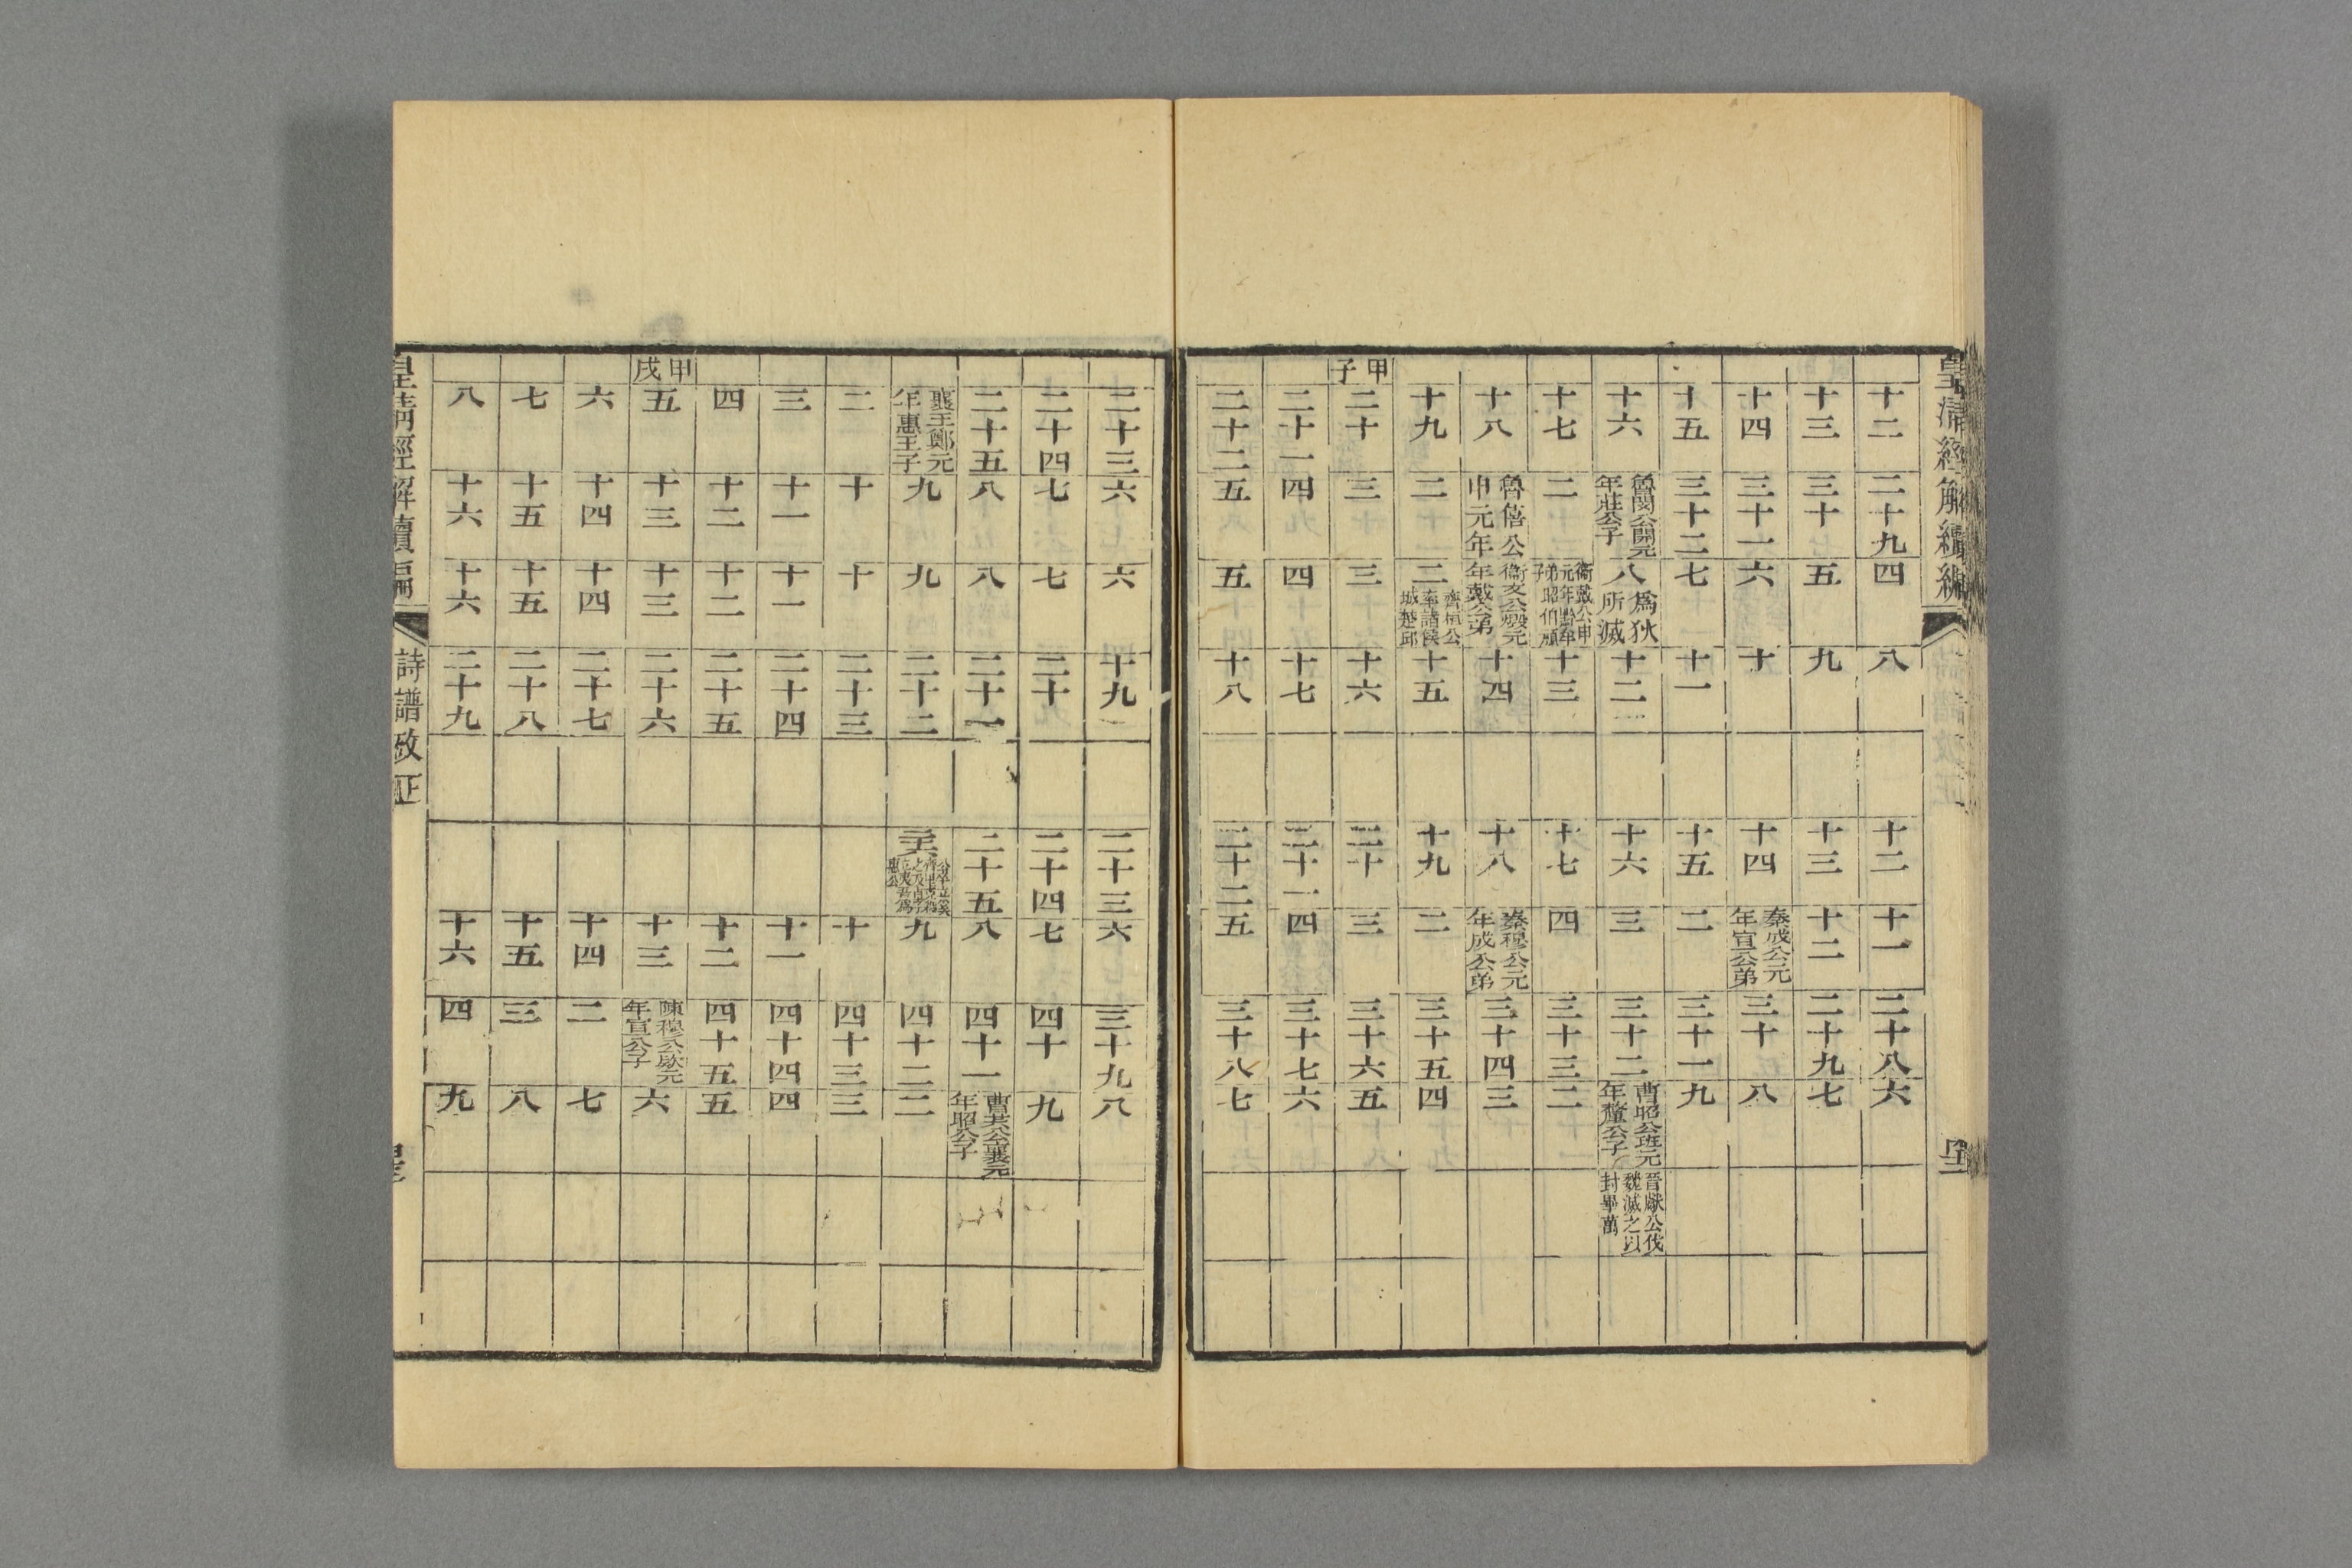 皇清經解續編
十二 二十九 四 八 十二 十一 二十八 六
十三 三十 五 九 十三 十二 二十九 七
十四 三十一 六 十 十四 秦成公元年宣公弟 三十 八
十五 三十二 七 十一 十五 二 三十一 九
十六 魯閔公開元年莊公子 八 爲狄所滅 十二 十六 三 三十二 曹昭公班元年釐公子 晉獻公伐魏滅之以封畢萬
十七 二 衞戴公申元年黔牟弟昭伯頑子 十三 十七 四 三十三 二
十八 魯僖公申元年 衞文公燬元年戴公弟 十四 十八 秦穆公元年成公弟 三十四 三
十九 二 二 齊桓公率諸侯城楚邱 十五 十九 二 三十五 四
甲子 二十 三 三 十六 二十 三 三十六 五
二十一 四 四 十七 二十一 四 三十七 六
二十二 五 五 十八 二十二 五 三十八 七
二十三 六 六 十九 二十三 六 三十九 八
二十四 七 七 二十 二十四 七 四十 九
二十五 八 八 二十一 二十五 八 四十一 曹共公襄元年昭公子
襄王鄭元年惠王子 九 九 二十二 二十六 公卒立奚齊里克殺之及卓子立夷吾爲惠公 九 四十二 二
二 十 十 二十三 十 四十三 三
三 十一 十一 二十四 十一 四十四 四
四 十二 十二 二十五 十二 四十五 五
甲戌 五 十三 十三 二十六 十三 陳穆公款元年宣公子 六
六 十四 十四 二十七 十四 二 七
七 十五 十五 二十八 十五 三 八
八 十六 十六 二十九 十六 四 九
皇清經解續編 詩譜攷正